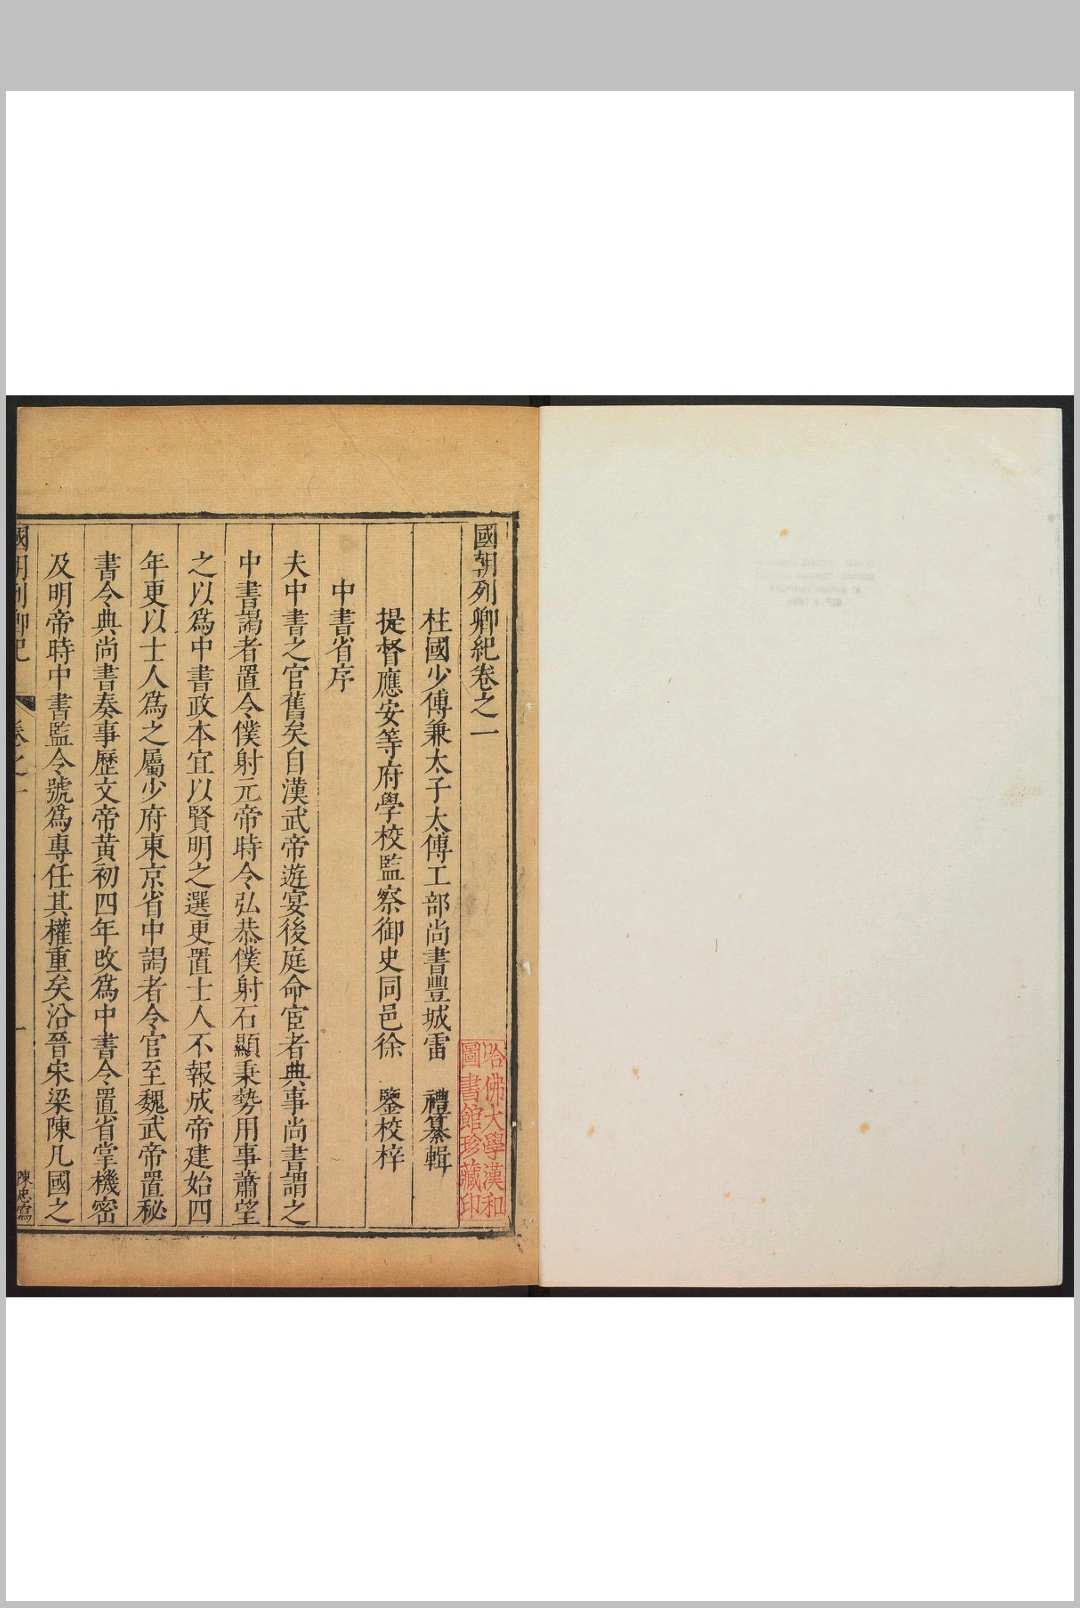 國朝列卿紀卷之一
柱國少傅兼太子太傅工部尚書豐城雷　禮纂輯
提督應安等府學校監察御史同邑徐　鑒校梓
中書省序
夫中書之官舊矣自漢武帝遊宴後庭命宦者典事尚書謂之
中書謁者置令僕射元帝時令弘恭僕射石顯秉勢用事蕭望
之以為中書政本宜以賢明之選更置士人不報成帝建始四
年更以士人為之屬少府東京省中謁者令官至魏武帝置秘
書令典尚書奏事歷文帝黃初四年改為中書令置省掌機密
及明帝時中書監令號為專任其權重矣沿晉宋梁陳凡國之
國朝列卿紀　卷之一　一　陳忠寫
哈佛大學漢和
圖書館珍藏印